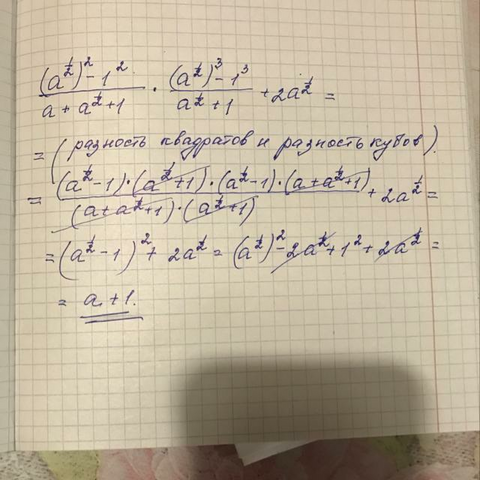 ((a^½)² - 1²)/(a + a^½ + 1) · ((a^½)³ - 1³)/(a^½ + 1) + 2a^½ =
= (разность квадратов и разность кубов)
= ((a^½ - 1) · (a^½ + 1) · (a^½ - 1) · (a + a^½ + 1))/((a + a^½ + 1) · (a^½ + 1)) + 2a^½ =
= (a^½ - 1)² + 2a^½ = (a^½)² - 2a^½ + 1² + 2a^½ =
= a + 1.